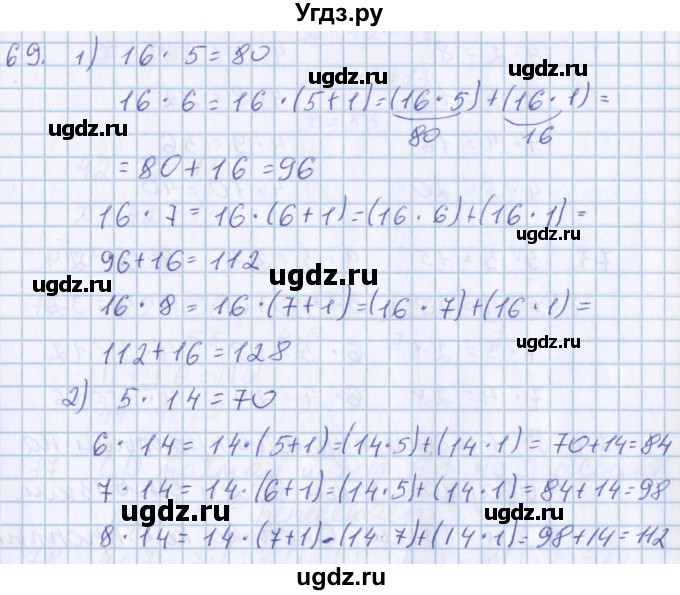 Угдз.ру
69. 1) 16 · 5 = 80
16 · 6 = 16 · (5+1) = (16 · 5) + (16 · 1) =
80 16
ugdz.ru ugdz.ru
= 80 + 16 = 96
16 · 7 = 16 · (6+1) = (16 · 6) + (16 · 1) =
ugdz.ru
96 + 16 = 112
ugdz.ru ugdz.ru
16 · 8 = 16 · (7+1) = (16 · 7) + (16 · 1) =
ugdz.ru
112 + 16 = 128
2) 5 · 14 = 70
ugdz.ru
6 · 14 = 14 · (5+1) = (14 · 5) + (14 · 1) = 70 + 14 = 84
7 · 14 = 14 · (6+1) = (14 · 5) + (14 · 1) = 84 + 14 = 98
ugdz.ru ugdz.ru
8 · 14 = 14 · (7+1) = (14 · 7) + (14 · 1) = 98 + 14 = 112
ugdz.ru